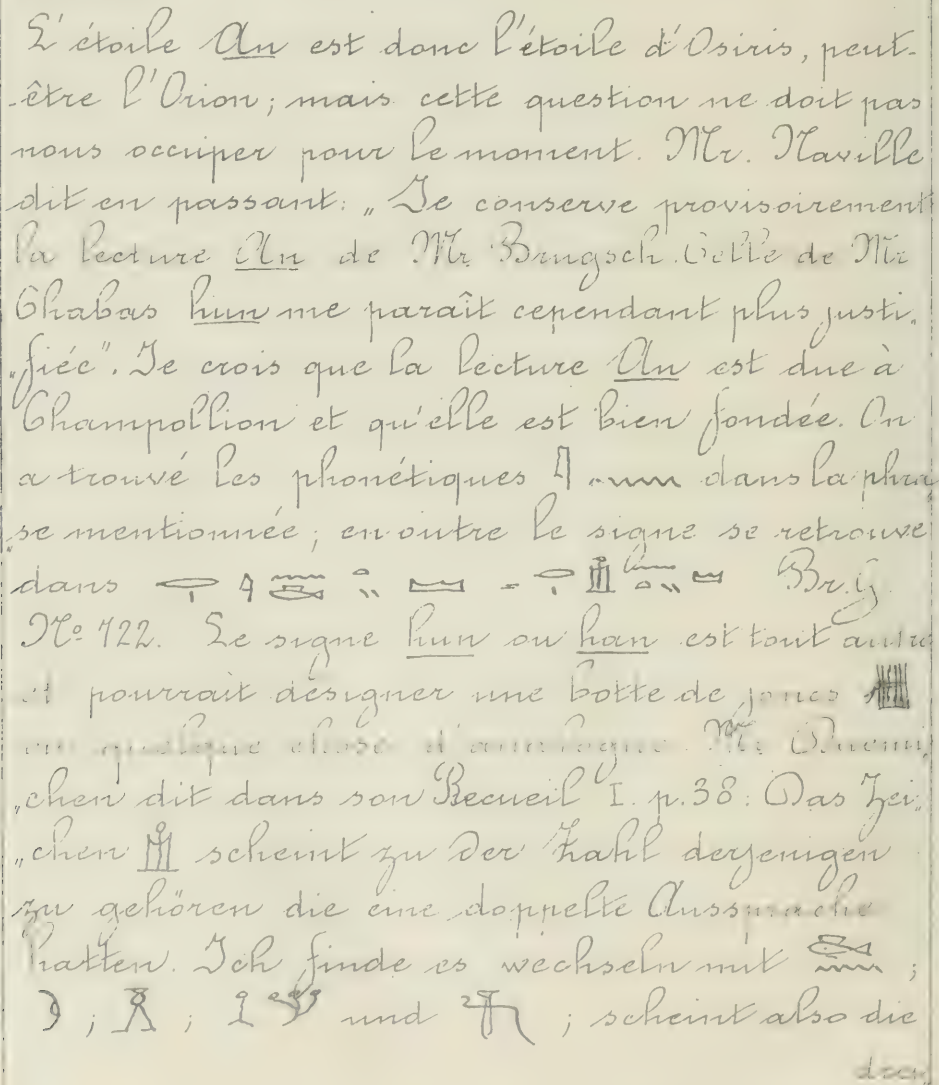 L'étoile An est donc l'étoile d'Osiris, peut-
-être l'Orion; mais cette question ne doit pas
nous occuper pour le moment. Mr. Naville
dit en passant: „Je conserve provisoirement
la lecture An de Mr. Brugsch. Celle de Mr
Chabas hun me paraît cependant plus justi„
„fiée". Je crois que la lecture An est due à
Champollion et qu'elle est bien fondée. On
a trouvé les phonétiques dans la phra„
„se mentionnée; en outre le signe se retrouve
dans Br. G.
No. 722. Le signe hun ou han est tout autre
et pourrait désigner une botte de joncs
ou quelque chose d'analogue. Mr. Duemi„
„chen dit dans son Recueil I. p. 38: Das Zei„
„chen scheint zu der Zahl derjenigen
zu gehören die eine doppelte Aussprache
hatten. Ich finde es wechseln mit ;
; ; und ; scheint also die